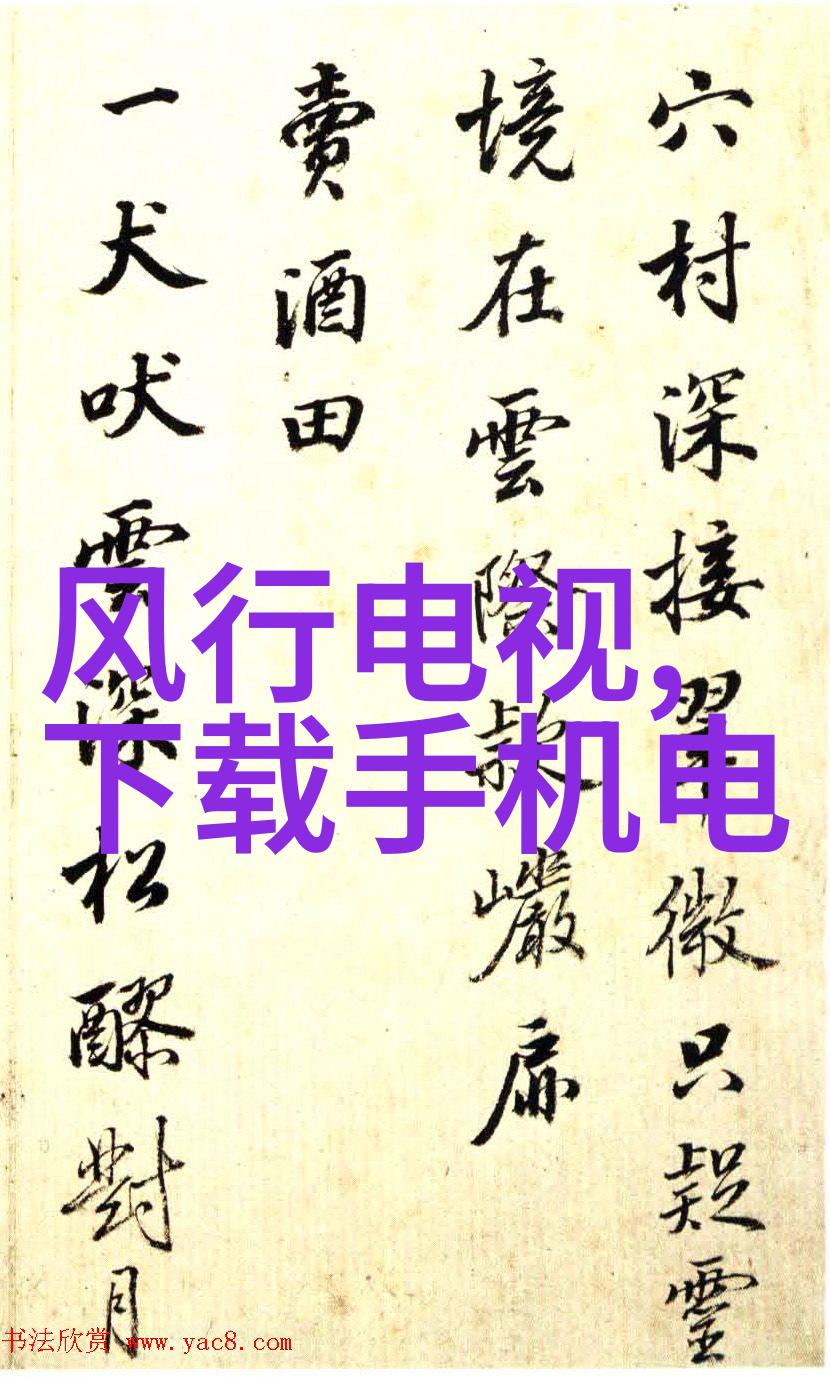 穴村深接翠微只疑靈
境在雲際欵巗扉
賣酒田
一犬吠雲深松醪對月
风行电视,
下载手机电
书法欣赏 www.yac8.com